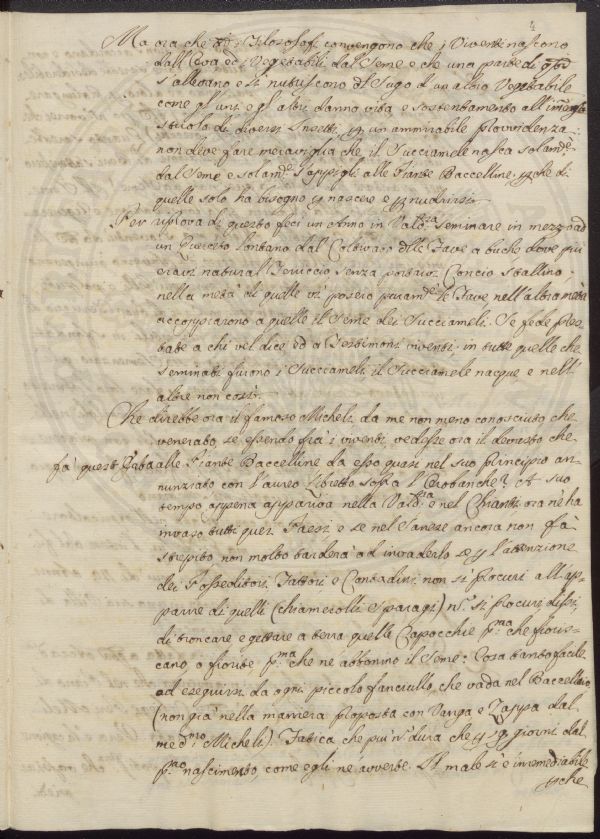 Ma ora che tti i Filosofi convengono che i Viventi nascono
dall'Uova ed i Vegetabili dal Seme e che una parte di qti
s'allevano e si nutriscono del Sugo d'un altro Vegetabile
come gl'uni e gl'altri danno vita e sostentamento all'
stuolo di diversi Insetti, p un ammirabile Provvidenza,
non deve fare meraviglia che il Succiamele nasca solamte
dal Seme e solamte s'appigli alle Piante Baccelline, pche di
quelle solo ha bisogno p nascere e p nudrirsi.
Per riprova di questo feci un Anno in Val seminare in mezzo ad
un Querceto lontano dal Coltivato delle Fave a buche dove più
eravi natural Teriuccio senza portarvi Concio stallino,
nella metà di quelle vi posero puramte le Fave nell'altra metà
accoppiarono a quelle il Seme dei Succiameli. Se fede pres
tate a chi vel dice ed a Testimoni viventi, in tutte quelle che
seminati furono i Succiameli il Succiamele nacque e nell'
altre non così.
Che direbbe ora il famoso Micheli da me non meno conosciuto che
venerato, se essendo fra i viventi vedesse ora il devasto che
fà quest'Erba alle Piante Baccelline da esso quasi nel suo principio an-
nunziato con l'aureo Libretto sopra l'Orobanche? A suo
tempo appena appariva nella Vald e nel Chianti ora n'ha
invaso tutti quei Paesi e se nel Sanese ancora non fà
strepito, non molto tarderà ad invaderlo se p l'attenzione
dei Posseditori, Fattori e Contadini non si procuri all'ap-
parire di quelli (chiamerolli Sparagi) si procuri, dissi,
di troncare e gettare a terra quelle Capocchie pma che fioris-
cano o fiorite pma che ne abbonino il Seme: Cosa tanto facile
ad eseguirsi da ogni piccolo fanciullo, che vada nel Baccellaio
(non già nella maniera proposta con Vanga e Zappa dal
medmo Micheli) Fatica che più n' dura che p giorni dal
pmo nascimento, come egli ne avverte. Il male si è irremediabile
pche